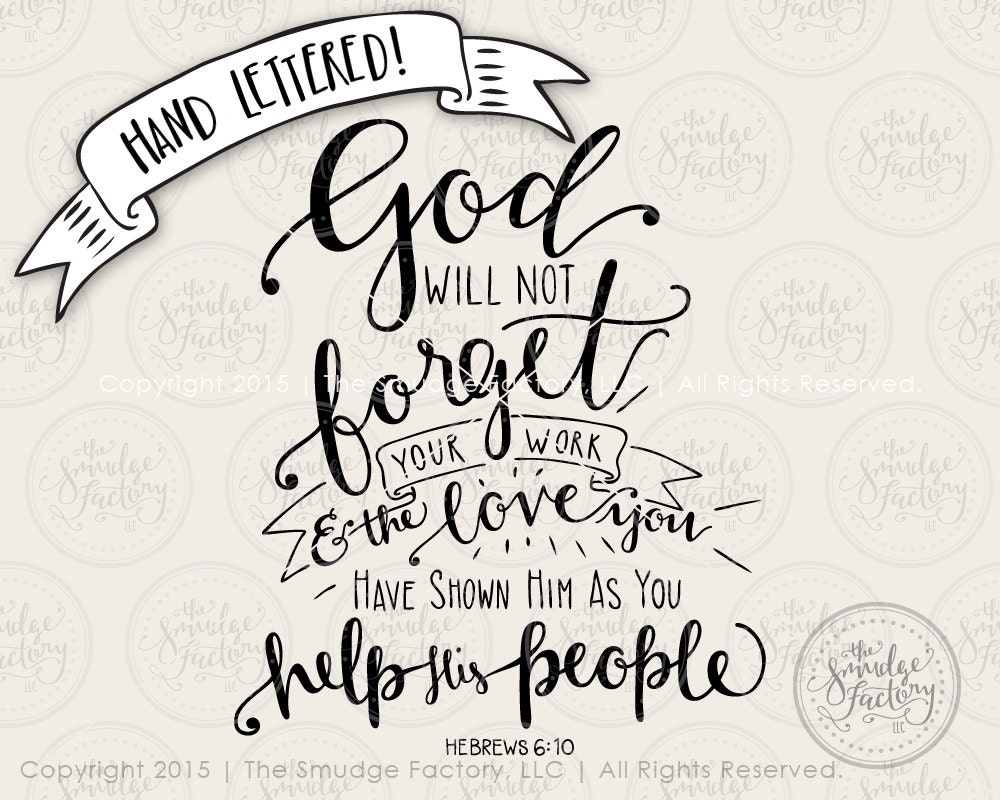 HAND LETTERED!
God
WILL NOT
forget
Copyright 2015 | The Smudge Factory, LLC | All Rights Reserved.
YOUR WORK
& the love you
HAVE SHOWN HIM AS YOU
help His people
the
Smudge
Factory
LLC
HEBREWS 6:10
Copyright 2015 | The Smudge Factory, LLC | All Rights Reserved.